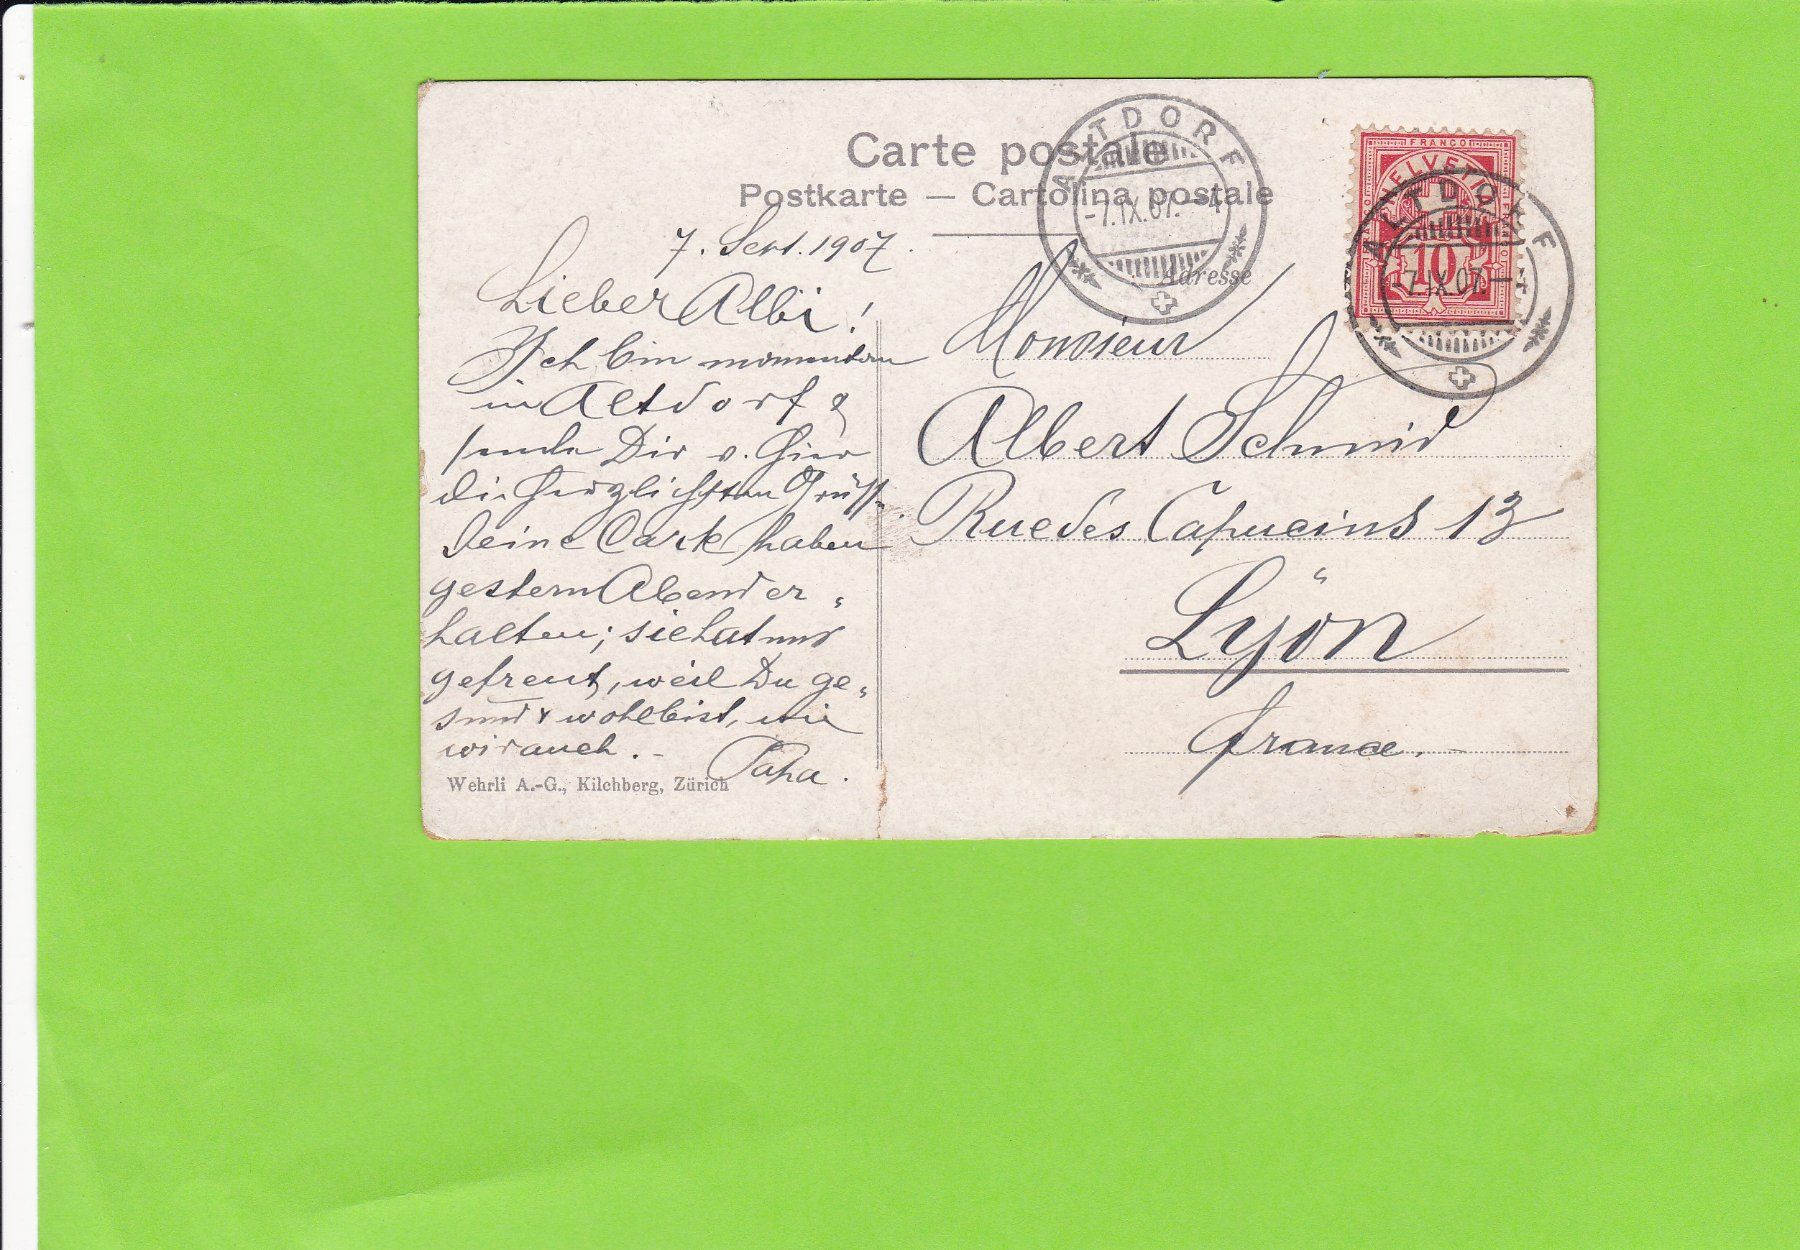 Carte postale
Postkarte — Cartolina postale
Adresse
ALTDORF
-7.IX.07.-4
FRANCO
HELVETIA
10
ALTDORF
-7.IX.07.-4
7. Sept. 1907.
Lieber Albi!
Ich bin momentan
in Altdorf &
sende Dir v. hier
die herzlichsten Grüsse.
Deine Carte haben
gestern Abend er-
halten; sie hat uns
gefreut, weil Du ge-
sund & wohl bist, wie
wir auch. -
Papa.
Wehrli A.-G., Kilchberg, Zürich
Monsieur
Albert Schmid
Rue des Capucins 13
Lyon
france.